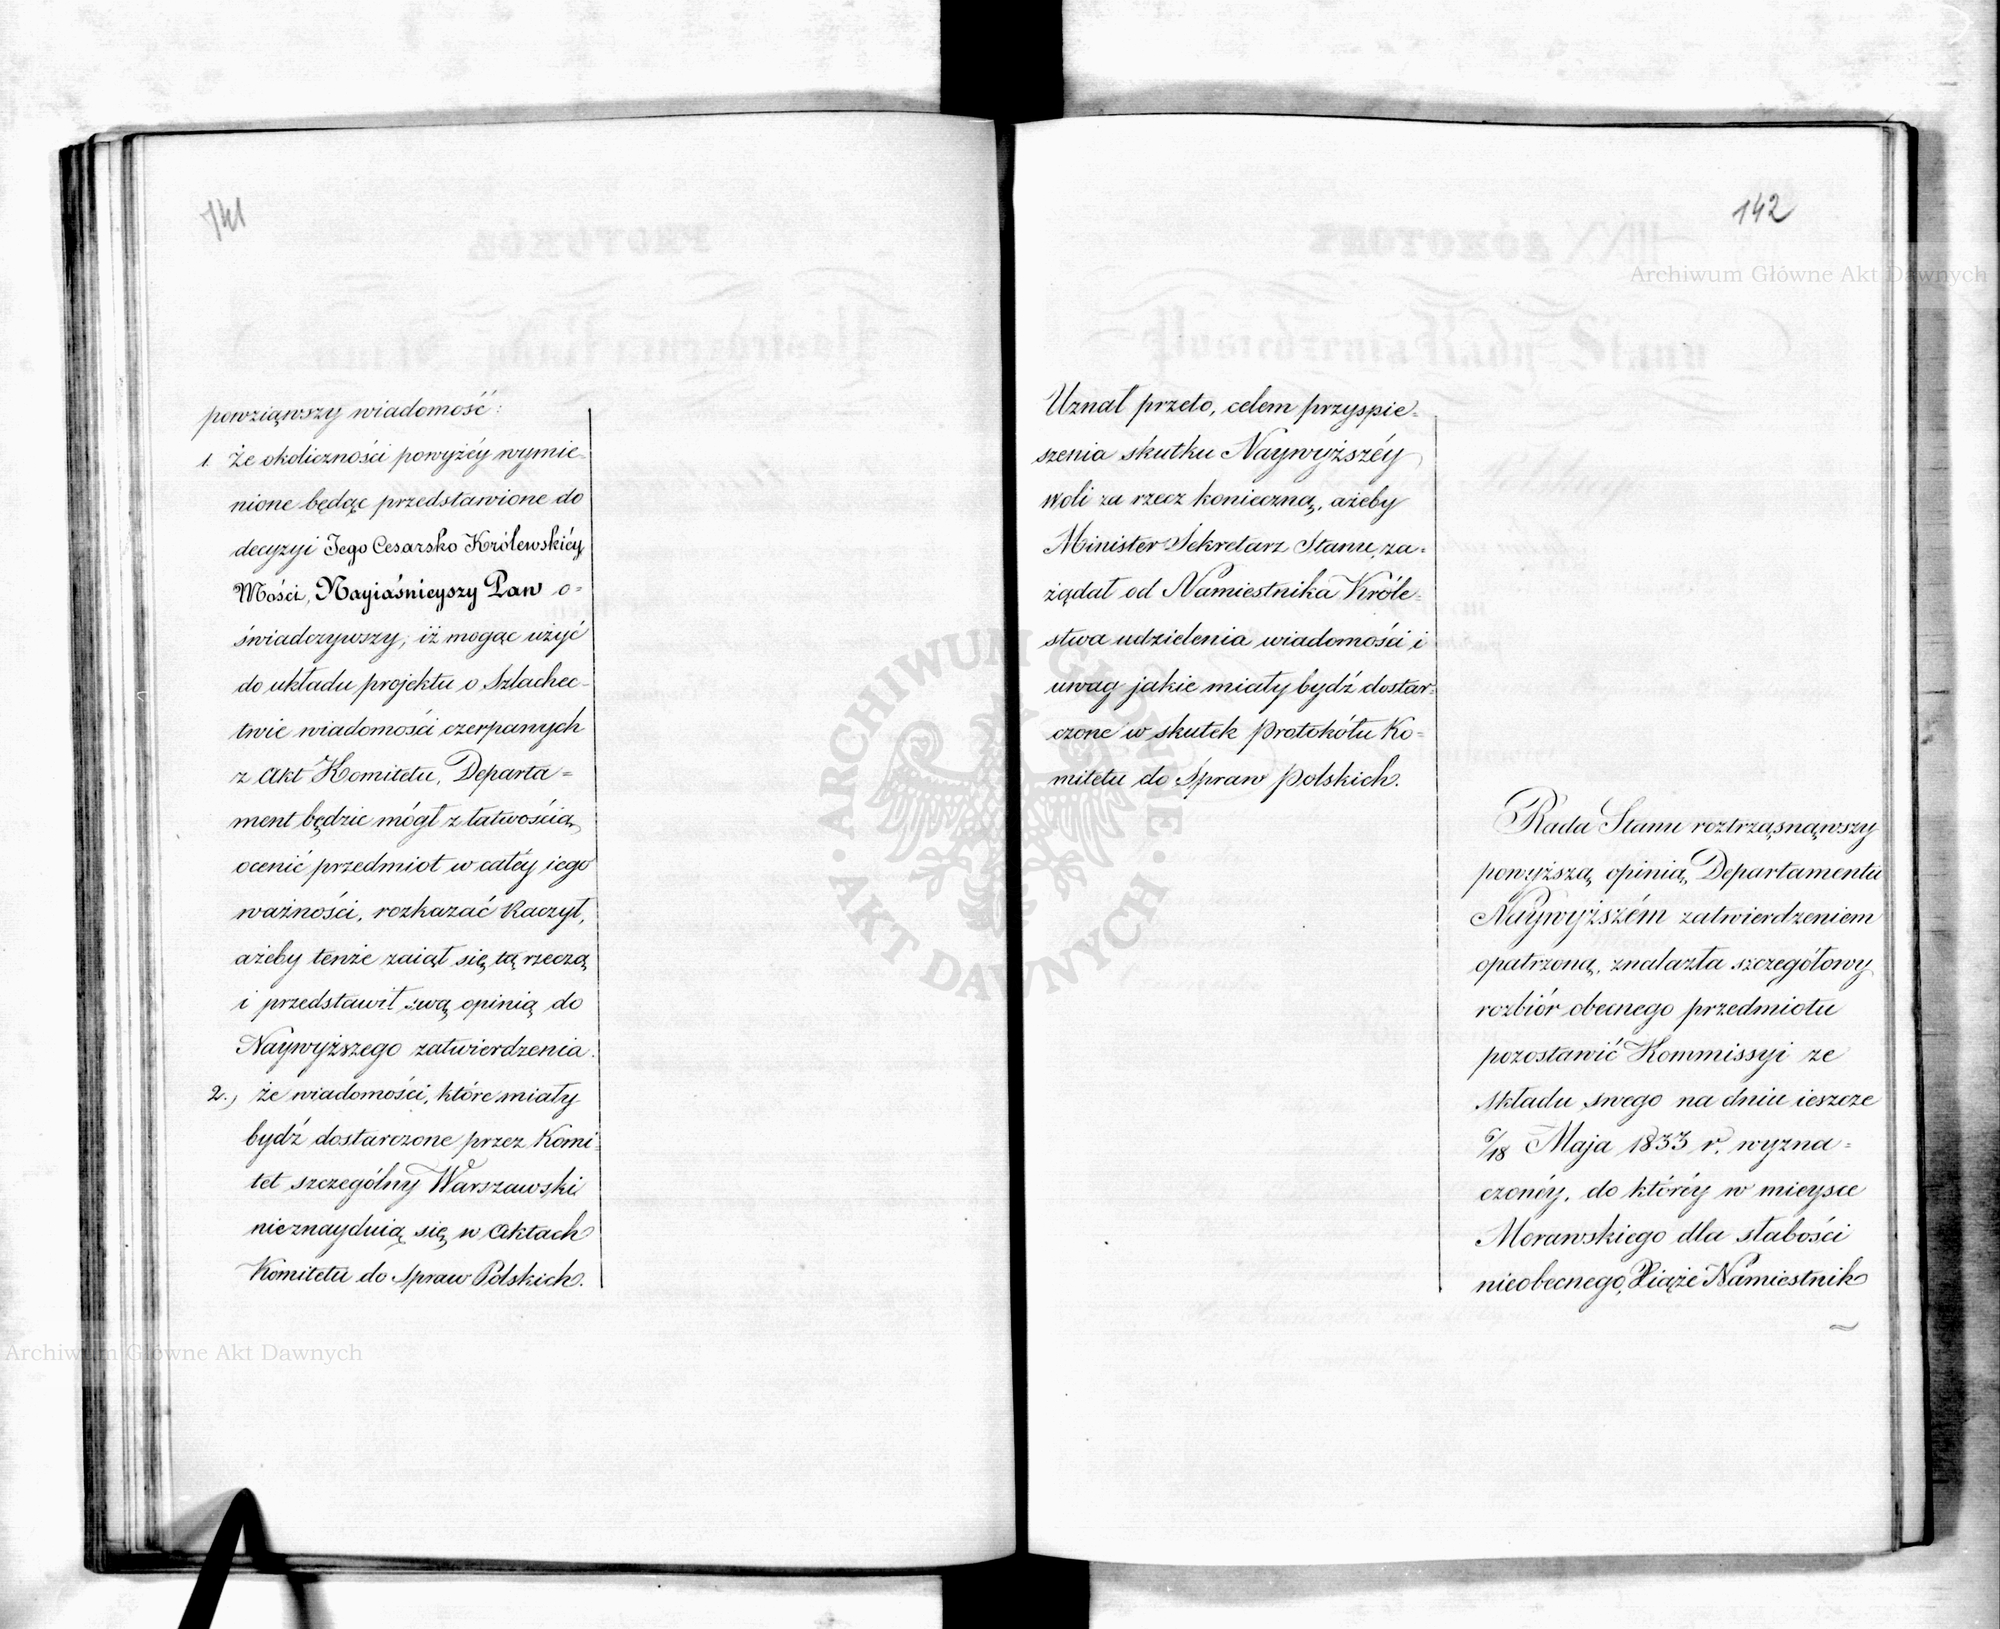 141
powziąwszy wiadomość:
1. Że okoliczności powyżéy wymie-
nione będąc przedstawione do
decyzyi Jego Cesarsko Królewskiéy
Mości, Nayiaśnieyszy Pan o-
świadczywszy, iż mogąc użyć
do układu projektu o Szlachec-
twie wiadomości czerpanych
z Akt Komitetu, Departa-
ment będzie mógł z łatwością
ocenić przedmiot w całéy iego
ważności, rozkazać Raczył,
ażeby tenże zaiął się tą rzeczą
i przedstawił swą opinią do
Naywyższego zatwierdzenia.
2., że wiadomości, które miały
bydź dostarczone przez Komi-
tet szczególny Warszawski
nieznayduią się w Aktach
Komitetu do Spraw Polskich.
142
Uznał przeto, celem przyspie-
szenia skutku Naywyższéy
woli za rzecz konieczną, ażeby
Minister Sekretarz Stanu, za-
żądał od Namiestnika Króle-
stwa udzielenia wiadomości i
uwag jakie miały bydź dostar-
czone w skutek Protokółu Ko-
mitetu do Spraw Polskich.
Rada Stanu roztrząsnąwszy
powyższą opinią Departamentu
Naywyższém zatwierdzeniem
opatrzoną, znalazła szczegółowy
rozbiór obecnego przedmiotu
pozostawić Kommissyi ze
składu swego na dniu ieszcze
6/18 Maja 1833 r. wyzna-
czonéy, do któréy w mieysce
Morawskiego dla słabości
nieobecnego, Xiąże Namiestnik
Archiwum Główne Akt Dawnych
Archiwum Główne Akt Dawnych
ARCHIWUM GŁÓWNE · AKT DAWNYCH ·